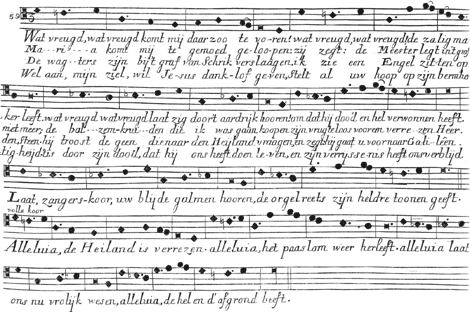 59
Wat vreugd, wat vreugd komt mij daar zoo te vo-ren! wat vreugd, wat vreugd! de zalig ma
Ma--ri---a komt mij te gemoed ge-loo-pen: zij zegt: de Meester legt in't graf
De wag-ters zijn bij't graf van Schrik verslagen. ik zie een Engel zitten op
Wel aan, mijn ziel, wil Je-sus dank-lof geven, Stelt al uw hoop op zijn bermhe
ker leeft. wat vreugd wat vreugd laat zig door't aardrijk hooren! om dat hij dood en hel verwonnen heeft.
niet meer; de bal---zem-krui---den die ik was gaan koopen zijn vrugteloos voor een verre-zen Heer.
den Steen. hij troost de geen die naar den Heyland vragen, en zegt: hij gaat u voor naar Gali-lëen.
tig-heid. 't is door zijn dood, dat hij ons heeft doen le-ven, en zijn verrysse-nis heeft ons verblijd.
Laat, zangers-koor, uw blyde galmen hooren, de orgel reets zijn heldre toonen geeft.
volle koor.
Alleluia, de Heiland is verrezen. alleluia, het paaslam weer herleeft. alleluia laat
ons nu vrolijk wesen, alleluia, de hel en d'afgrond beeft.